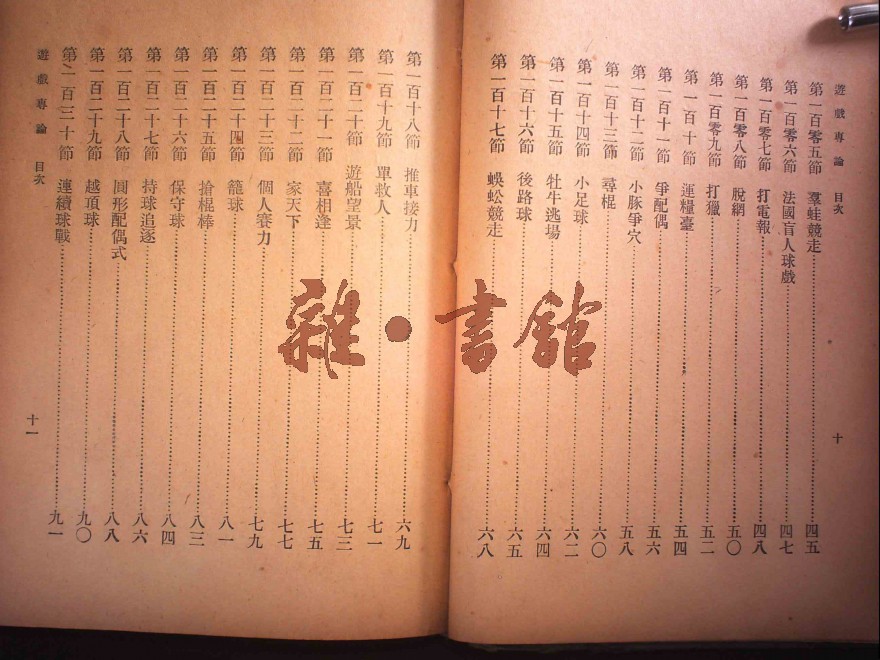 遊戲專論 目次
第一百零五節 羣蛙競走 四五
第一百零六節 法國盲人球戲 四七
第一百零七節 打電報 四八
第一百零八節 脫網 五〇
第一百零九節 打獵 五二
第一百十節 運糧臺 五四
第一百十一節 爭配偶 五六
第一百十二節 小豚爭穴 五八
第一百十三節 尋棍 六〇
第一百十四節 小足球 六二
第一百十五節 牡牛逃場 六四
第一百十六節 後路球 六五
第一百十七節 蜈蚣競走 六八
十
第一百十八節 推車接力 六九
第一百十九節 單救人 七一
第一百二十節 遊船望景 七三
第一百二十一節 喜相逢 七五
第一百二十二節 家天下 七七
第一百二十三節 個人賽力 七九
第一百二十四節 籠球 八一
第一百二十五節 搶棍棒 八三
第一百二十六節 保守球 八四
第一百二十七節 持球追逐 八六
第一百二十八節 圓形配偶式 八八
第一百二十九節 越頂球 九〇
第一百三十節 連續球戰 九一
遊戲專論 目次
十一
雜·書館